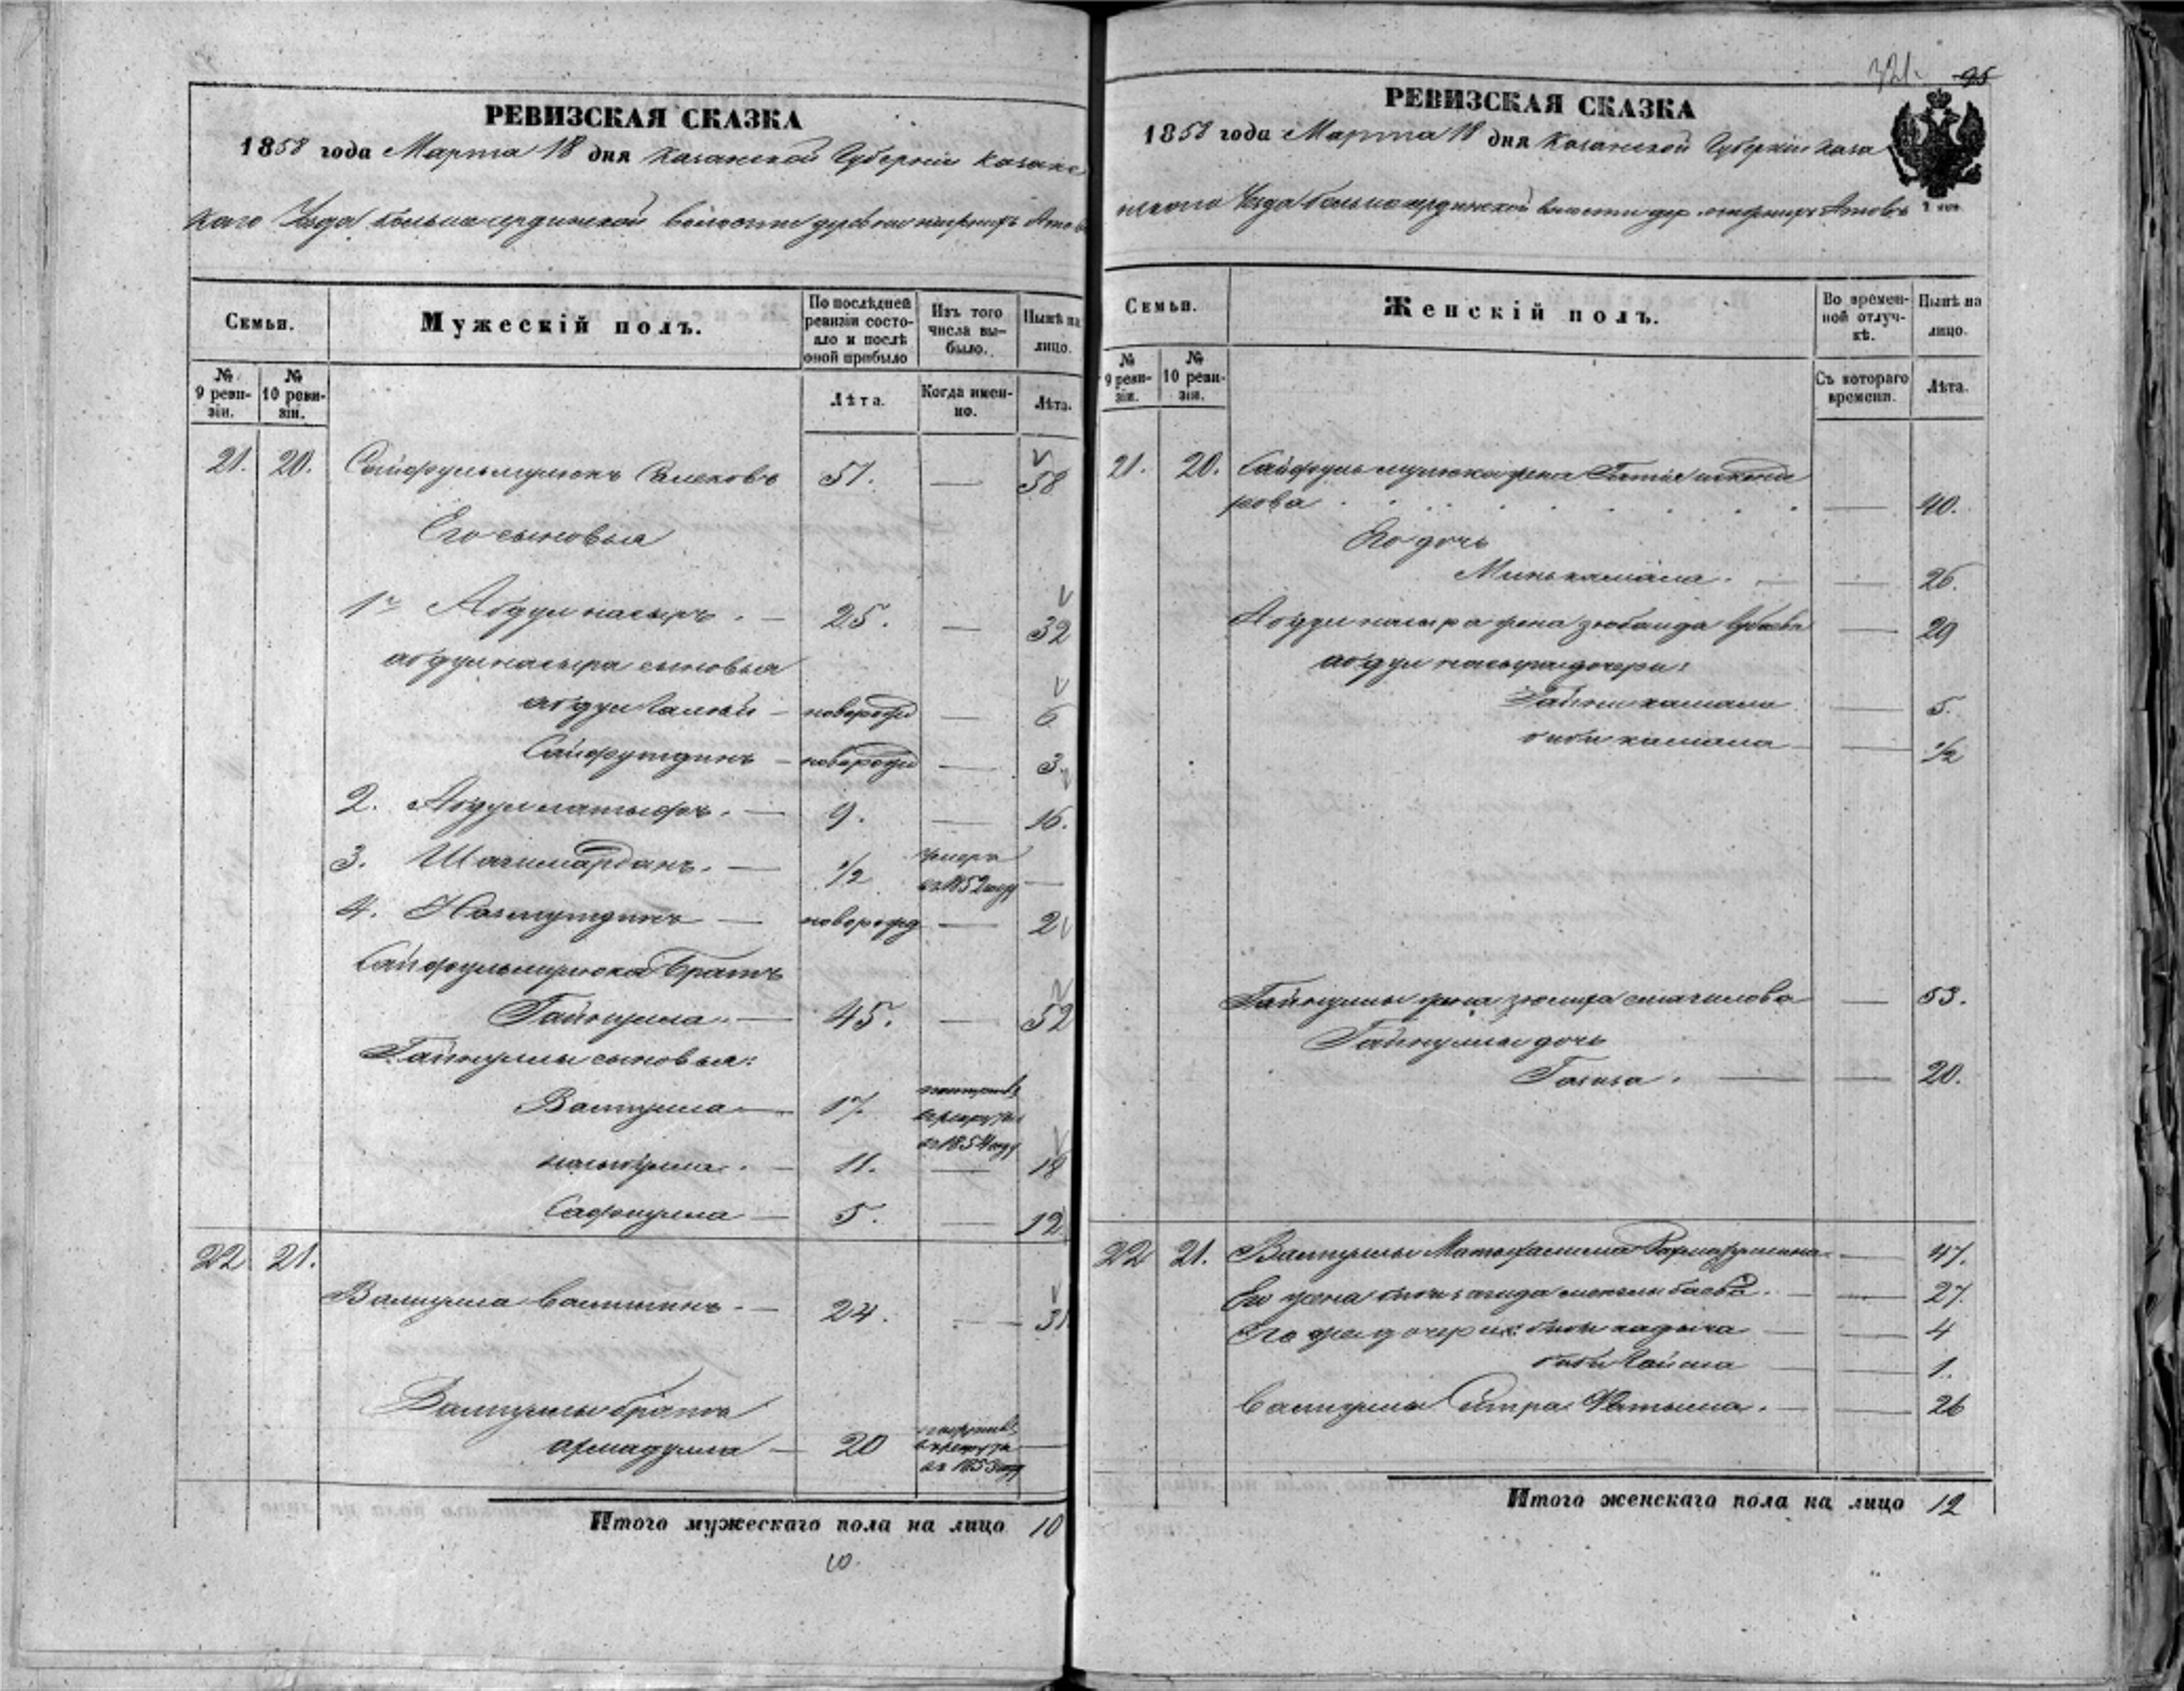 РЕВИЗСКАЯ СКАЗКА
1858 года Марта 18 дня Казанской Губернии Казанс
каго Уезда больше сердинской волости деревни Атов
Семьи.
Мужескій полъ.
По послѣдней ревизіи состояло и послѣ оной прибыло
Изъ того числа выбыло.
Нынѣ на лицо.
№ 9 ревизіи.
№ 10 ревизіи.
Лѣта.
Когда именно.
Лѣта.
21. 20. Сайфульмулюкъ Салеховъ 51. — 58
Его сыновья
1й Абдулнасыръ. — 25. — 32
абдулнасыра сыновья
абдулГалей — новорожд — 6
Сайфутдинъ — новорожд — 3
2. Абдуллатыфъ. — 9. — 16.
3. Шагимарданъ. — 1/2 умеръ
въ 1852 году —
4. Назмутдинъ — новорожд — 2
Сайфульмулюка братъ
Гайнулла. — 45. — 52
Гайнуллы сыновья:
Валиулла — 17.
въ рекруты
въ 1854 году
11. — 18
Сафиулла — 5. — 12
22 21.
Валиулла Валитинъ. — 24. — 31
Валиуллы братъ
ахмадулла — 20
въ рекруты
въ 1853 году —
Итого мужескаго пола на лицо 10
10.
321. 95
РЕВИЗСКАЯ СКАЗКА
1858 года Марта 18 дня Казанской Губерніи Каза
нскаго Уезда больше сердинской волости дер. Атовъ
Семьи.
Женскій полъ.
Во временной отлучкѣ.
Нынѣ на лицо.
№ 9 ревизіи.
№ 10 ревизіи.
Съ котораго времени.
Лѣта.
21. 20. Сайфульмулюка жена
рова . . . . . . . — 40.
Его дочь
Минькамала. — — 26.
Абдулнасыра жена зюбаида — 29
абдулнасыра дочери:
Гайникамала — 5.
бибикамала — — 1/2
Гайнуллы жена смагилова — 53.
Гайнуллы дочь
Газиза. — — 20.
22 21. Валиуллы Мать — 47.
Его жена — 27.
Его дочери: биби хадыча — — 4
биби Гайша — — 1.
Валиуллы Сестра Фатыма. — — 26
Итого женскаго пола на лицо 12